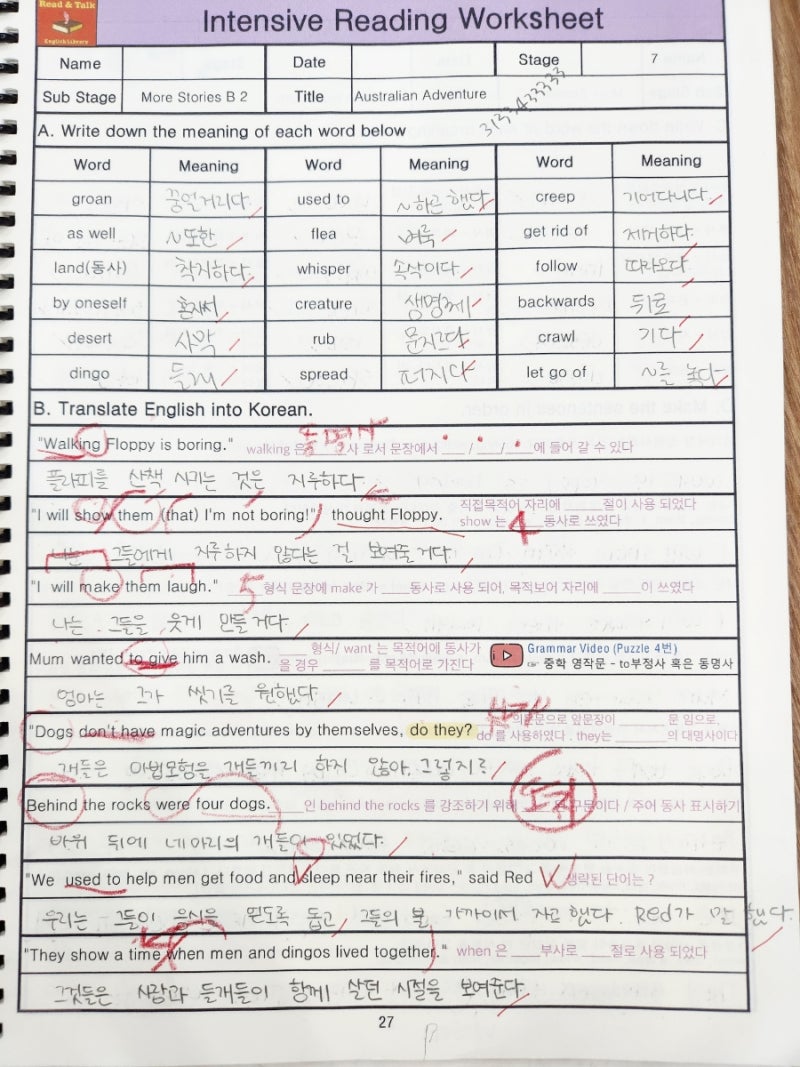 Read & Talk
English Library
Intensive Reading Worksheet
Name Date Stage 7
Sub Stage More Stories B 2 Title Australian Adventure
A. Write down the meaning of each word below
Word Meaning Word Meaning Word Meaning
groan 끙얼거리다 used to ~하곤 했다 creep 기어다니다
as well ~또한 flea 벼룩 get rid of 제거하다
land(동사) 착지하다 whisper 속삭이다 follow 따라오다
by oneself 혼자서 creature 생명체 backwards 뒤로
desert 사막 rub 문지르다 crawl 기다
dingo 들개 spread 퍼지다 let go of ~를 놓다
B. Translate English into Korean.
동명사
"Walking Floppy is boring." walking 은 ___사 로서 문장에서 ___ / ___/ ___에 들어 갈 수 있다
플라피를 산책 시키는 것은 지루하다.
"I will show them (that) I'm not boring!" thought Floppy. 직접목적어 자리에 ______절이 사용 되었다
show 는 4 ___동사로 쓰였다
나는 그들에게 지루하지 않다는 걸 보여줄거다.
"I will make them laugh." 5 형식 문장에 make 가 ____동사로 사용 되어, 목적보어 자리에 ______이 쓰였다
나는 그들을 웃게 만들거다.
Mum wanted to give him a wash. ____ 형식/ want 는 목적어에 동사가
올 경우 ______ 를 목적어로 가진다
Grammar Video (Puzzle 4번)
☞ 중학 영작문 - to부정사 혹은 동명사
엄마는 그가 씻기를 원했다.
"Dogs don't have magic adventures by themselves, do they? 의문문으로 앞문장이 _______ 문 임으로,
do 를 사용하였다 . they는 ________의 대명사이다
개들은 마법모험은 개들끼리 하지 않아, 그렇지?
Behind the rocks were four dogs. ____인 behind the rocks 를 강조하기 위해 도치 구문이다 / 주어 동사 표시하기
바위 뒤에 네마리의 개들이 있었다.
"We used to help men get food and sleep near their fires," said Red 생략된 단어는 ?
우리는 그들이 음식을 얻도록 돕고, 그들의 불 가까이서 자곤 했다. Red가 말했다.
"They show a time when men and dingos lived together." when 은 ____부사로 ____절로 사용 되었다
그것들은 사람과 들개들이 함께 살던 시절을 보여준다.
27